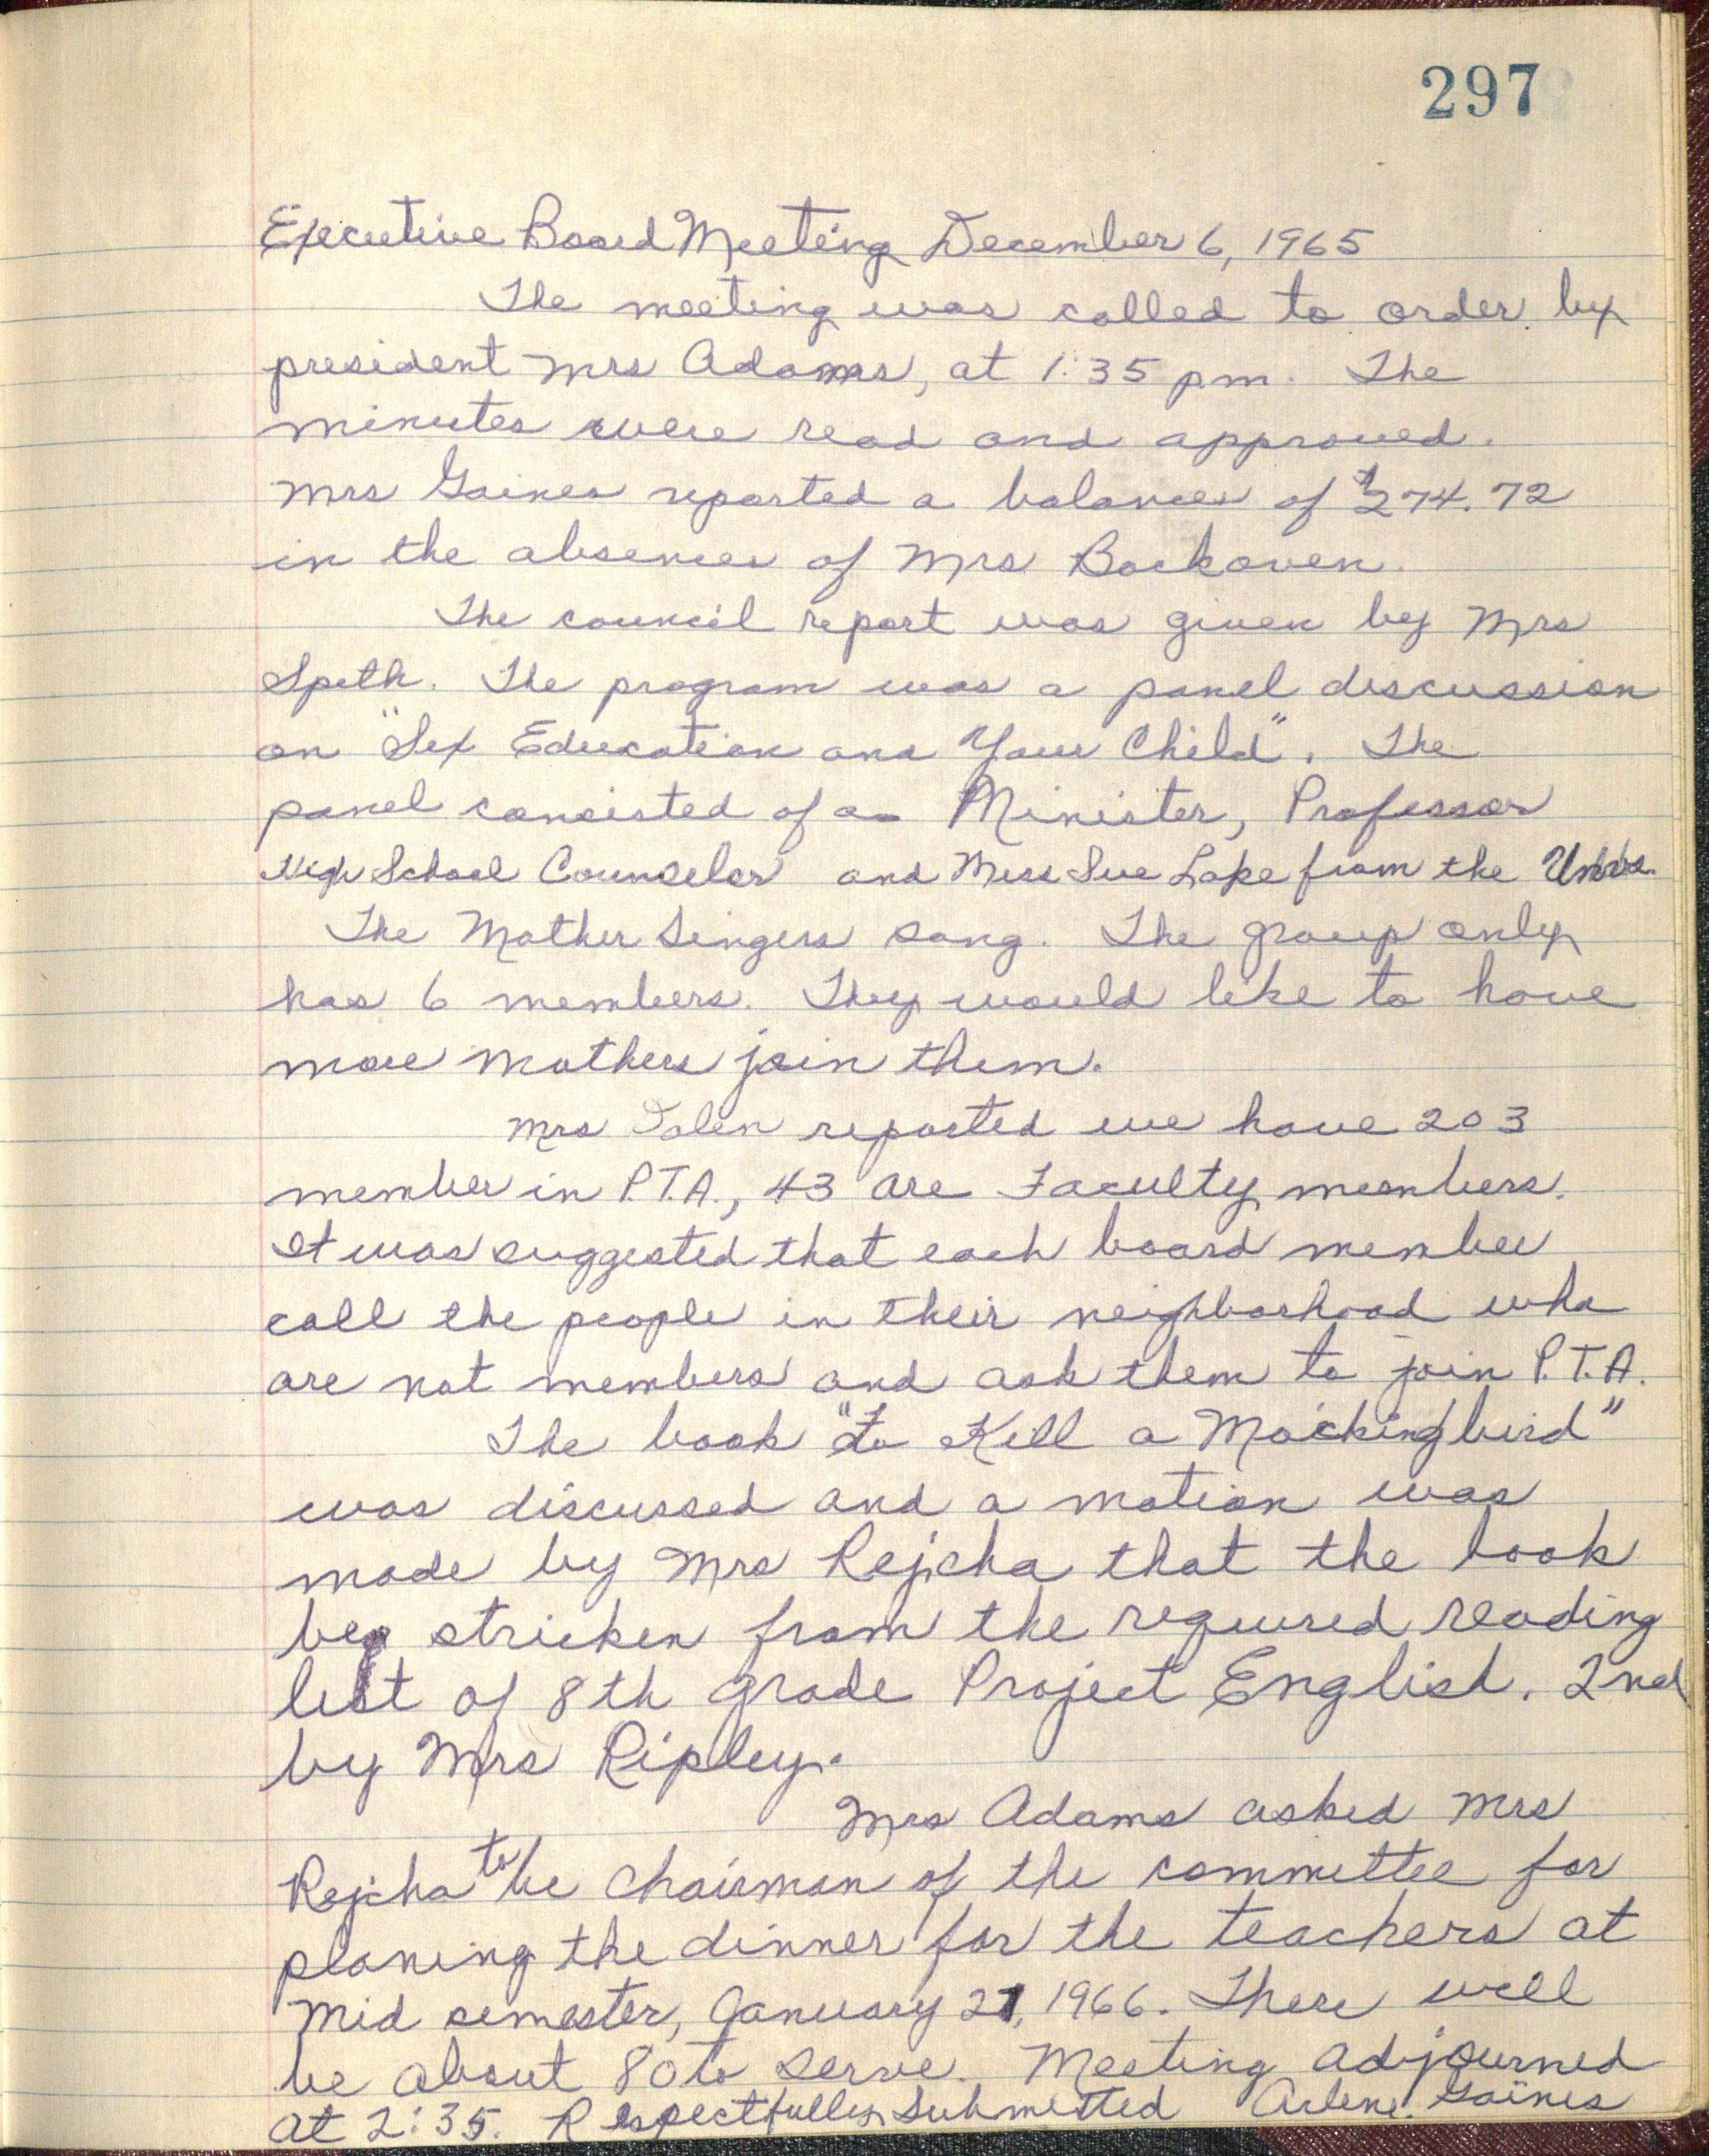 297
Executive Board Meeting December 6, 1965
The meeting was called to order by
president Mrs Adams, at 1:35 p.m. The
minutes were read and approved.
Mrs Gaines reported a balance of $274.72
in the absence of Mrs Backoven.
The council report was given by Mrs
Speth. The program was a panel discussion
on "Sex Education and Your Child". The
panel consisted of a Minister, Professor
High School Counselor and Miss Sue Lake from the
The Mother Singers sang. The group only
has 6 members. They would like to have
more mothers join them.
Mrs Tolen reported we have 203
member in P.T.A., 43 are Faculty members.
It was suggested that each board member
call the people in their neighborhood who
are not members and ask them to join P.T.A.
The book "To Kill a Mockingbird"
was discussed and a motion was
made by Mrs Rejcha that the book
be stricken from the required reading
list of 8th grade Project English. 2nd
by Mrs Ripley.
Mrs Adams asked Mrs
Rejcha to be chairman of the committee for
planing the dinner for the teachers at
mid semester, January 21, 1966. There will
be about 80 to serve. Meeting adjourned
at 2:35. Respectfully Submitted Arlene Gaines